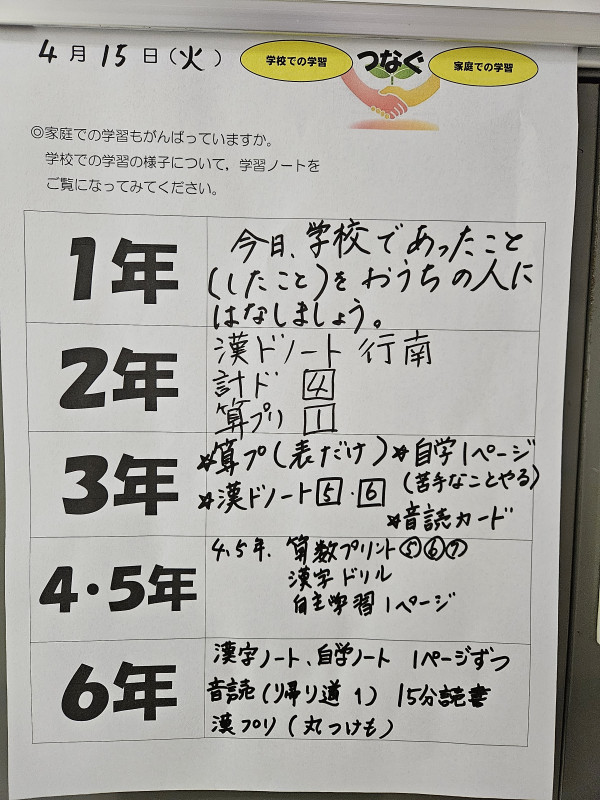 4月15日(火)
学校での学習
つなぐ
家庭での学習
◎家庭での学習もがんばっていますか。
学校での学習の様子について,学習ノートを
ご覧になってみてください。
1年
今日、学校であったこと
(したこと)をおうちの人に
はなしましょう。
2年
漢ドノート 行南
計ド 4
算プリ 1
3年
*算プ(表だけ) *自学1ページ
(苦手なことやる)
*漢ドノート5・6
*音読カード
4・5年
4、5年、算数プリント⑤⑥⑦
漢字ドリル
自主学習1ページ
6年
漢字ノート、自学ノート 1ページずつ
音読(帰り道1) 15分読書
漢プリ(丸つけも)